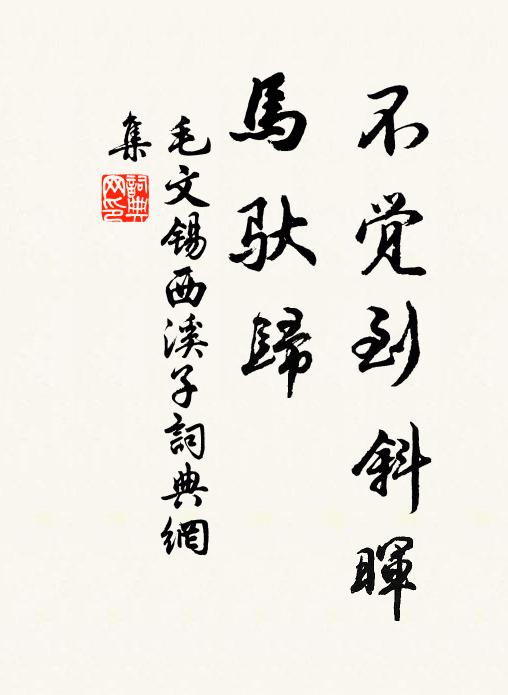 不觉到斜暉
馬馱歸
毛文锡西溪子詞典網
集
詞典网印